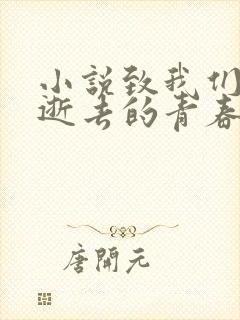 小说致我们
逝去的青春
唐开元